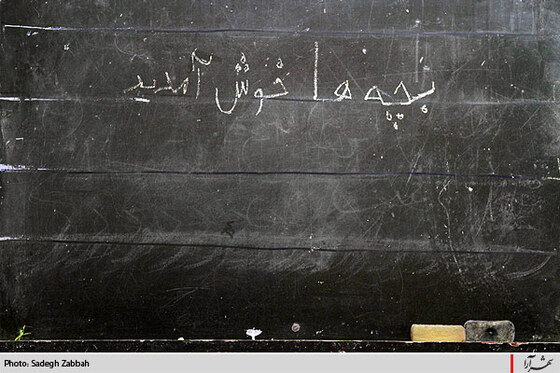 بچه ها خوش آمدید
Photo: Sadegh Zabbah
شهرآرا